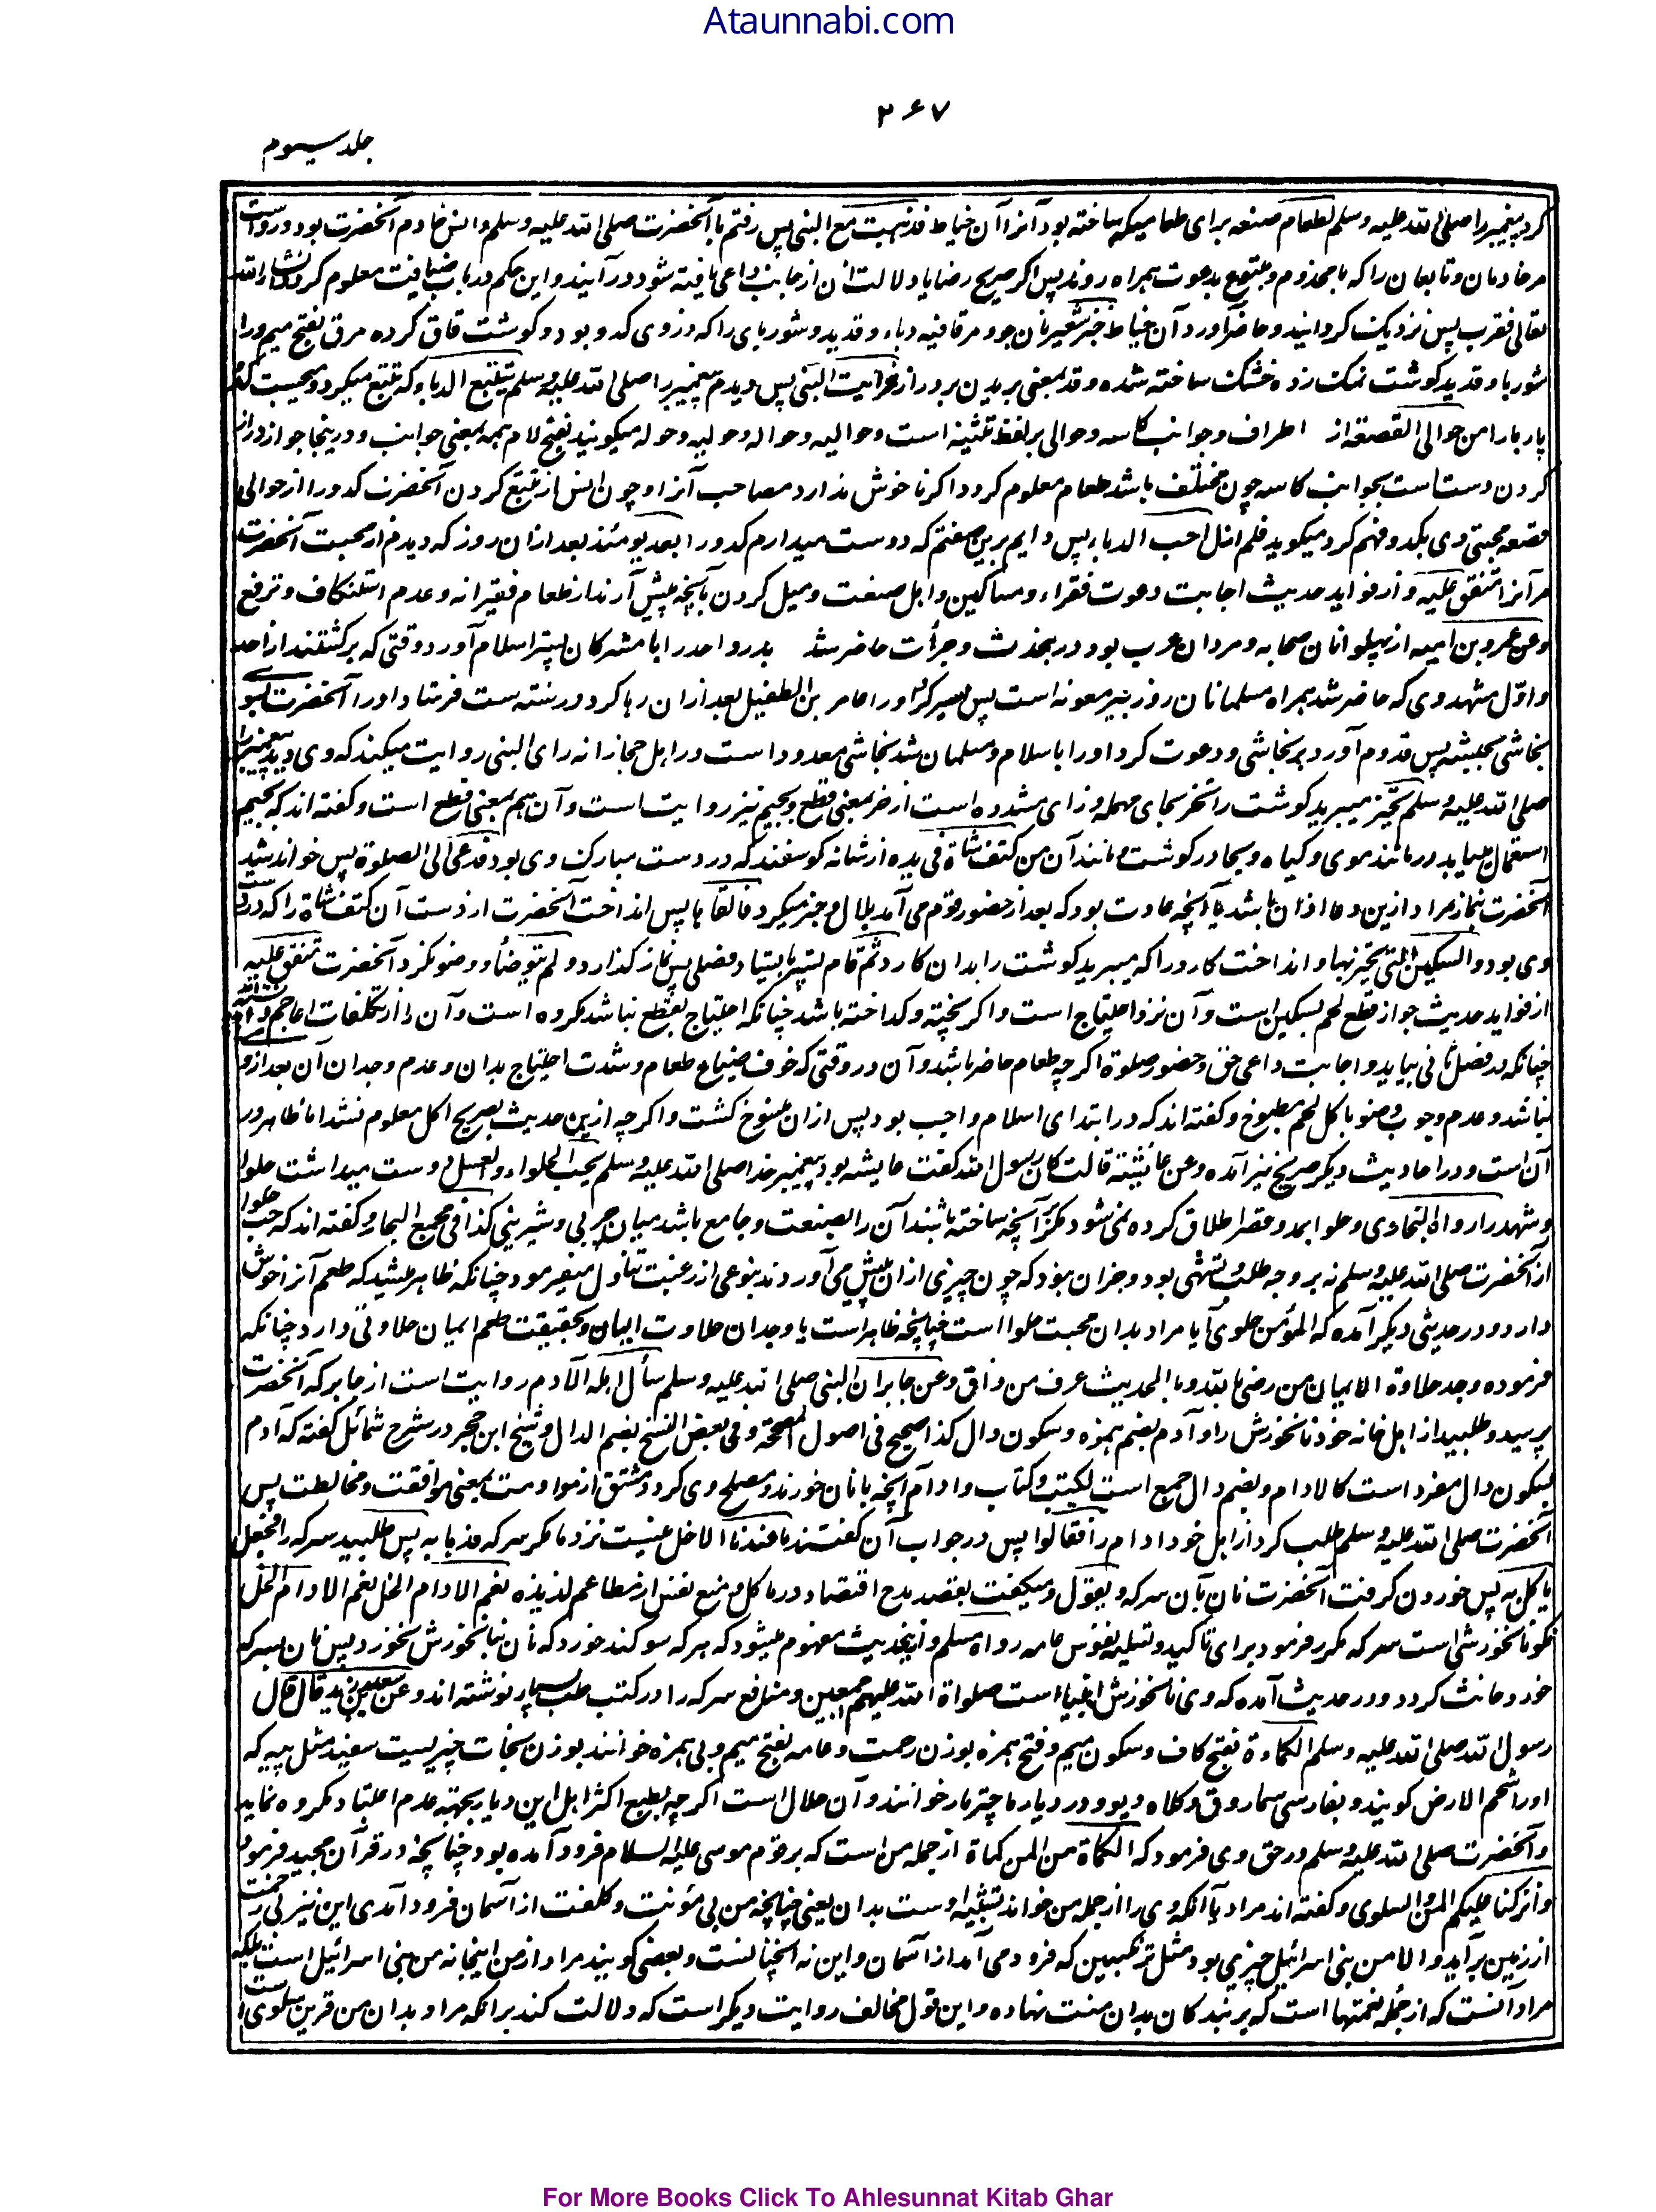 Ataunnabi.com
۳۶۷
جلد سیوم
کرد پیغمبر را صلی الله علیه وسلم لطعام صنعه برای طعامیکه ساخته بود آنرا آن خیاط فذهبت مع النبی پس رفتم با آنحضرت صلی الله علیه وسلم وانس خادم آنحضرت بود و رواست
مرخادمان وتابعان را که با مخدوم ومتبوع بدعوت همراه روند پس اگر صریح رضا یا دلالت آن از جانب داعی یافته شود در آیند واین حکم در باب ضیافت معلوم کردد انشاء الله
تعالی فقرب پس نزدیک کردانید وحاضر آورد آن خیاط خبز شعیر نان جو ومرقا فیه دباء وقدید وشوربای را که در وی کدو بود وکوشت قاق کرده مرق بفتح میم ورا
شوربا وقدید کوشت نمک زده خشک ساخته شده وقد بمعنی بریدن بدرازا فرایت النبی پس دیدم پیغمبر را صلی الله علیه وسلم یتتبع الدباء که تتبع میکرد ومیجست کدو
پاربارا من حوالی القصعة از اطراف وجوانب کاسه وحوالی بلفظ تثنیه است وحوالیه وحواله وحولیه وحوله میکویند بفتح لام همه بمعنی جوانب ودرینجا جواز دراز
کردن دست است بجوانب کاسه چون مختلف باشد طعام معلوم کردد اکر ناخوش ندارد مصاحب آنرا وچون انس از تتبع کردن آنحضرت کدو را از حوالی
قصعه محبتی وی بکدو فهم کرد میکوید فلم ازل احب الدباء پس دایم برین صفتم که دوست میدارم کدو را بعد یومئذ بعد ازان روز که دیدم از محبت آنحضرت
مر آنرا متفق علیه واز فواید حدیث اجابت دعوت فقراء ومساکین واهل صنعت ومیل کردن بآنچه پیش آرند از طعام فقیرانه وعدم استنکاف وترفع
وعن عمرو بن امیه از پهلوانان صحابه ومردان عرب بود در نجدت وجرأت حاضر شد بدر واحد را با مشرکان پستر اسلام آورد وقتی که برکشتند از احد
واول مشهد وی که حاضر شد همراه مسلمانان روز بیر معونه است پس اسیر کرد او را عامر بن الطفیل بعد ازان رها کرد ودر سنه ست فرستاد او را آنحضرت بسوی
نجاشی بحبشه پس قدوم آورد بر نجاشی ودعوت کرد او را باسلام ومسلمان شد نجاشی معدود است در اهل حجاز انه رای النبی روایت میکند که وی دید پیغمبر را
صلی الله علیه وسلم یحتز میبرید کوشت را تحز بحای مهمله وزای مشدده است از حز بمعنی قطع وبجیم نیز روایت است وآن هم بمعنی قطع است وکفته اند که بجیم
استعمال مییابد در مانند موی وکیاه وبحا در کوشت ومانند آن من کتف شاة فی یده از شانه کوسفند که در دست مبارک وی بود فدعی الی الصلوة پس خوانده شد
آنحضرت بنماز مراد ازین دعا اذان باشد یا آنچه عادت بود که بعد از حضور قوم می آمد بلال وخبر میکرد فالقاها پس انداخت آنحضرت از دست آن کتف شاة را که در دست
وی بود والسکین التی یحتز بها وانداخت کارد را که میبرید کوشت را بدان کارد ثم قام پستر بایستاد فصلی پس نماز کذارد ولم یتوضأ ووضو نکرد آنحضرت متفق علیه
از فواید حدیث جواز قطع لحم بسکین است وآن نزد احتیاج است واکر پخته وکداخته باشد چنانکه احتیاج بقطع نباشد مکروه است وآن را از تکلفات اعاجم
چنانکه در فصل ثانی بیاید واجابت داعی حق وحضور صلوة اکرچه طعام حاضر باشد وآن در وقتی که خوف ضیاع طعام وشدت احتیاج بدان وعدم وجدان آن بعد ازو
نباشد وعدم وجوب وضو باکل لحم مطبوخ وکفته اند که در ابتدای اسلام واجب بود پس ازان منسوخ کشت واکرچه ازین حدیث بصریح اکل معلوم نشد اما ظاهر در
آن است ودر احادیث دیکر صریح نیز آمده وعن عائشة قالت کان رسول الله کفت عایشه بود پیغمبر خدا صلی الله علیه وسلم یحب الحلواء والعسل دوست میداشت حلوا
وشهد را رواه البخاری وحلوا بمد وقصر اطلاق کرده نمی شود مکر آنچه ساخته باشند آن را بصنعت وجامع باشد میان چربی وشیرینی کذا فی مجمع البحار وکفته اند که حب حلوا
از آنحضرت صلی الله علیه وسلم نه بر وجه طلب وتشهی بود وجز آن نبود که چون چیزی ازان پیش می آوردند بنوعی از رغبت تناول میفرمود چنانکه ظاهر میشد که طعم آنرا خوش
دارد ودر حدیثی دیکر آمده که المؤمن حلوی آیا مراد بدان محبت حلوا است چنانچه ظاهر است یا وجدان حلاوت ایمان وبحقیقت طعم ایمان حلاوتی دارد چنانکه
فرموده وجد حلاوة الایمان من رضی بالله ربا الحدیث عرف من ذاق وعن جابر ان النبی صلی الله علیه وسلم سأل اهله الادم روایت است از جابر که آنحضرت
پرسید وطلبید از اهل خانه خود نانخورش را وآدم بضم همزه وسکون دال کذا صحیح فی اصول المصححة وفی بعض النسخ بضم الدال وشیخ ابن حجر در شرح شمائل کفته که آدم
بسکون دال مفرد است کالادام وبضم دال جمع است ککتب وکتاب وادام آنچه با نان خورند ومصلح وی کردد مشتق از موادمت بمعنی موافقت ومخالطت پس
آنحضرت صلی الله علیه وسلم طلب کرد از اهل خود ادام را فقالوا پس در جواب آن کفتند ما عندنا الا خل نیست نزد ما مکر سرکه فدعا به پس طلبید سرکه را فجعل
یاکل به پس خوردن کرفت آنحضرت نان بآن سرکه ویقول ومیکفت بقصد مدح اقتصاد در ماکل ومنع نفس از مطاعم لذیذه نعم الادام الخل نعم الادام الخل
نکو نانخورشی است سرکه مکرر فرمود برای تاکید وتسلیه نفوس عامه رواه مسلم وازین حدیث مفهوم میشود که هرکه سوکند خورد که نان با نانخورش نخورد پس نان بسرکه
خورد حانث کردد ودر حدیث آمده که وی نانخورش انبیاء است صلواة الله علیهم اجمعین ومنافع سرکه را در کتب طب بسیار نوشته اند وعن سعید بن زید قال قال
رسول الله صلی الله علیه وسلم الکماءة بفتح کاف وسکون میم وفتح همزه بوزن رحمت وعامه بفتح میم وبی همزه خوانند بوزن نجات چیزیست سفید مثل پیه که
اورا شحم الارض کویند وبفارسی سماروق وکلاه دیو ودر دیار ما چترمار خوانند وآن حلال است اکرچه بطبع اکثر اهل این دیار بجهته عدم اعتیاد مکروه نماید
وآنحضرت صلی الله علیه وسلم در حق وی فرمود که الکماة من المن کماة از جمله من است که بر قوم موسی علیه السلام فرود آمده بود چنانچه در قرآن مجید فرمود
وانزلنا علیکم المن والسلوی وکفته اند مراد بآنکه وی را از جمله من خواند تشبیه اوست بدان یعنی چنانچه من بی مؤنت وکلفت از آسمان فرود آمدی این نیز بی زحمت
از زمین برآید والا من بنی اسرائیل چیزی بود مثل ترنجبین که فرود می آمد از آسمان واین نه آنچنانست وبعضی کویند مراد از من اینجا نه من بنی اسرائیل است بلکه
مراد آنست که از جمله نعمتها است که بر بندکان بدان منت نهاده واین قول مخالف روایت دیکر است که دلالت کند بر آنکه مراد بدان من قرین سلوی است
For More Books Click To Ahlesunnat Kitab Ghar